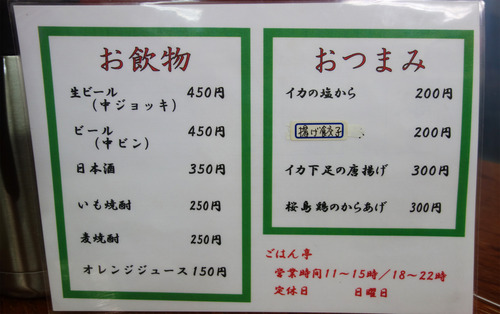 お飲物
生ビール 450円
(中ジョッキ)
ビール 450円
(中ビン)
日本酒 350円
いも焼酎 250円
麦焼酎 250円
オレンジジュース 150円
おつまみ
イカの塩から 200円
揚げ餃子 200円
イカ下足の唐揚げ 300円
桜島鶏のからあげ 300円
ごはん亭
営業時間11〜15時/18〜22時
定休日 日曜日